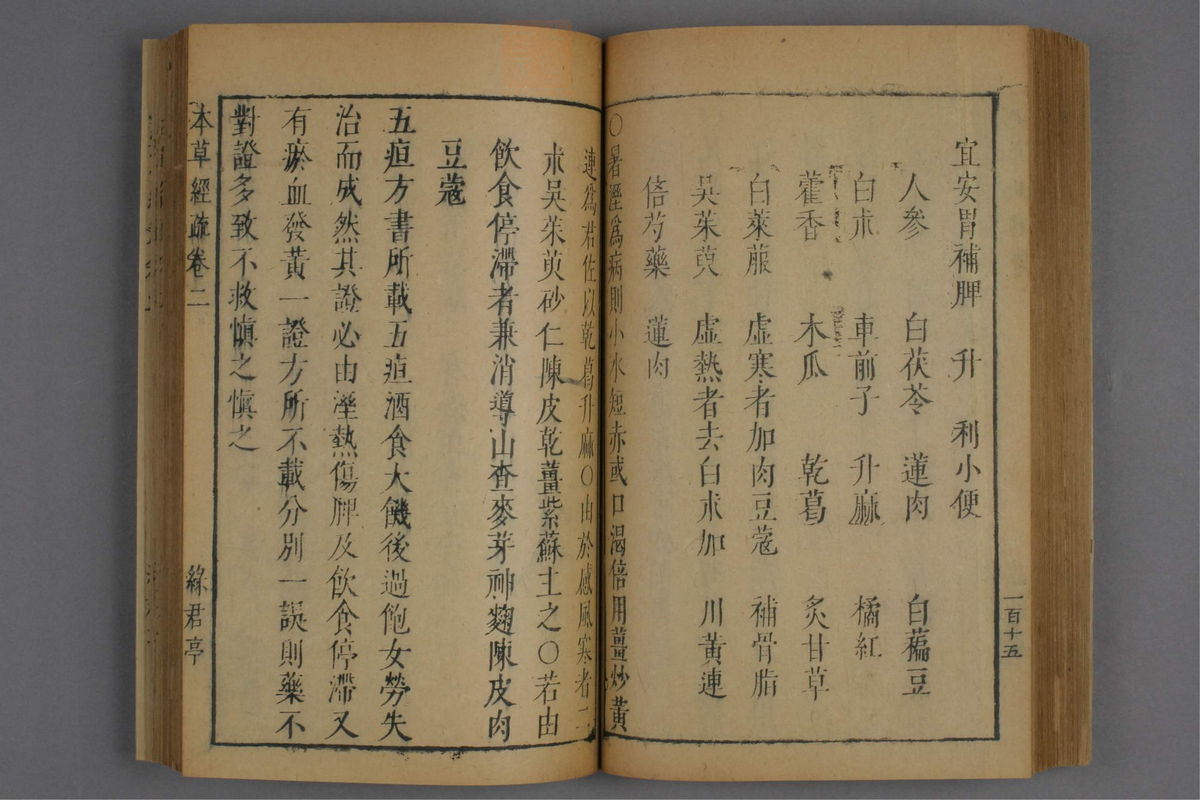 一百十五
宜安胃補脾　升　利小便
人參　白茯苓　蓮肉　白藊豆
白朮　車前子　升麻　橘紅
藿香　木瓜　乾葛　炙甘草
白萊菔　虛寒者加肉豆蔻　補骨脂
吳茱萸　虛熱者去白朮加　川黃連
倍芍藥　蓮肉
○暑溼爲病則小水短赤或口渴倍用薑炒黃
連爲君佐以乾葛升麻○由於感風寒者二
朮吳茱萸砂仁陳皮乾薑紫蘇主之○若由
飲食停滯者兼消導山查麥芽神麴陳皮肉
豆蔻
五疸方書所載五疸酒食大饑後過飽女勞失
治而成然其證必由溼熱傷脾及飲食停滯又
有瘀血發黃一證方所不載分別一誤則藥不
對證多致不救愼之愼之
本草經疏卷二　綠君亭